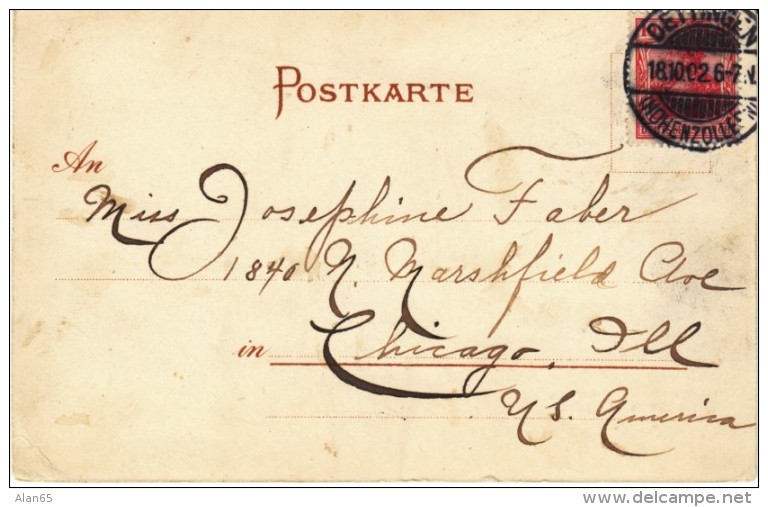 POSTKARTE
OETTINGEN
18.10.02.6-7.N.
(HOHENZOLLERN)
An
Miss Josephine Faber
1840 N. Marshfield Ave
in Chicago, Ill
U.S. America
Alan65
http://www.delcampe.net